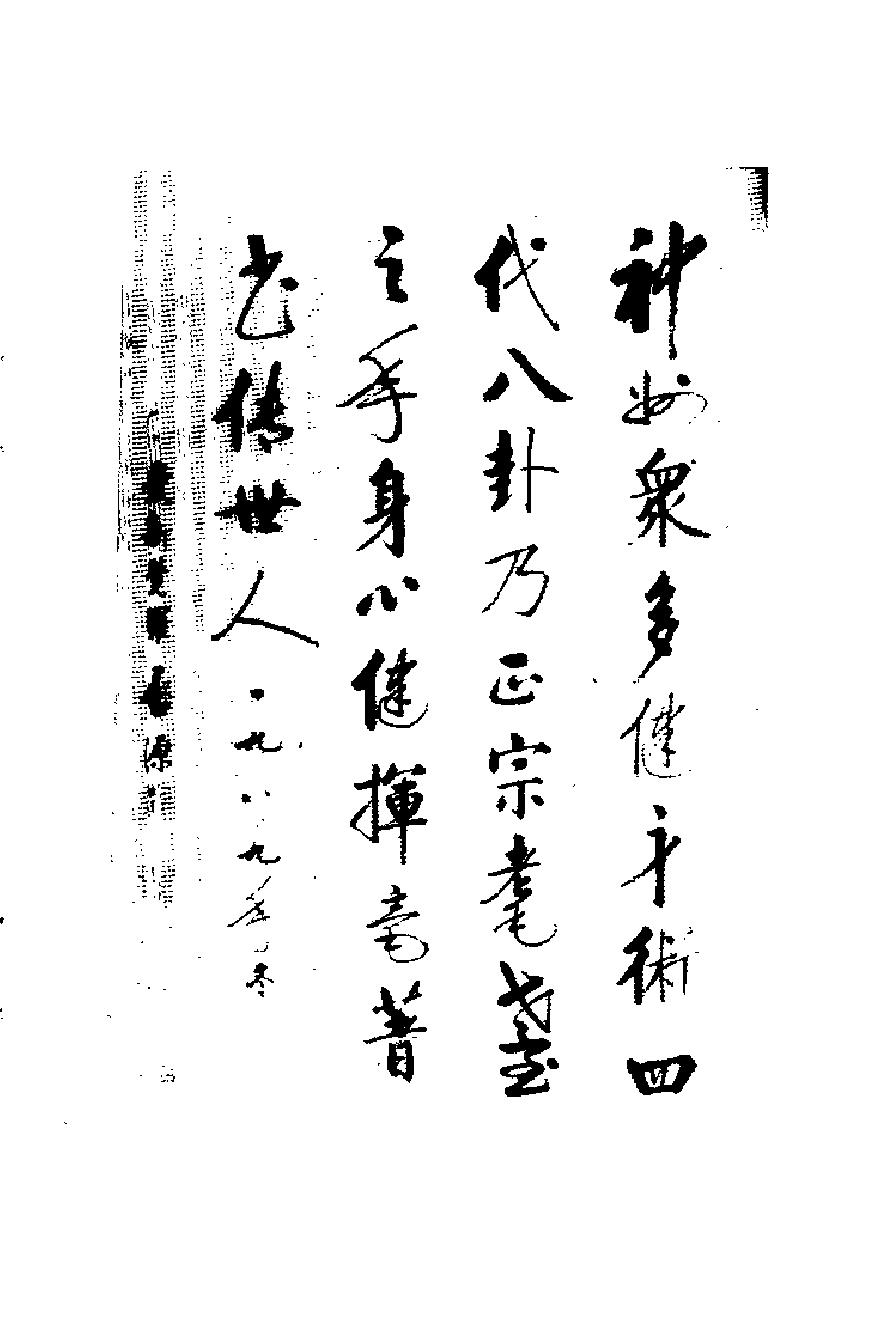 神州衆多健身術四
代八卦乃正宗耄耋
之年身心健揮毫著
书传世人一九八九年冬